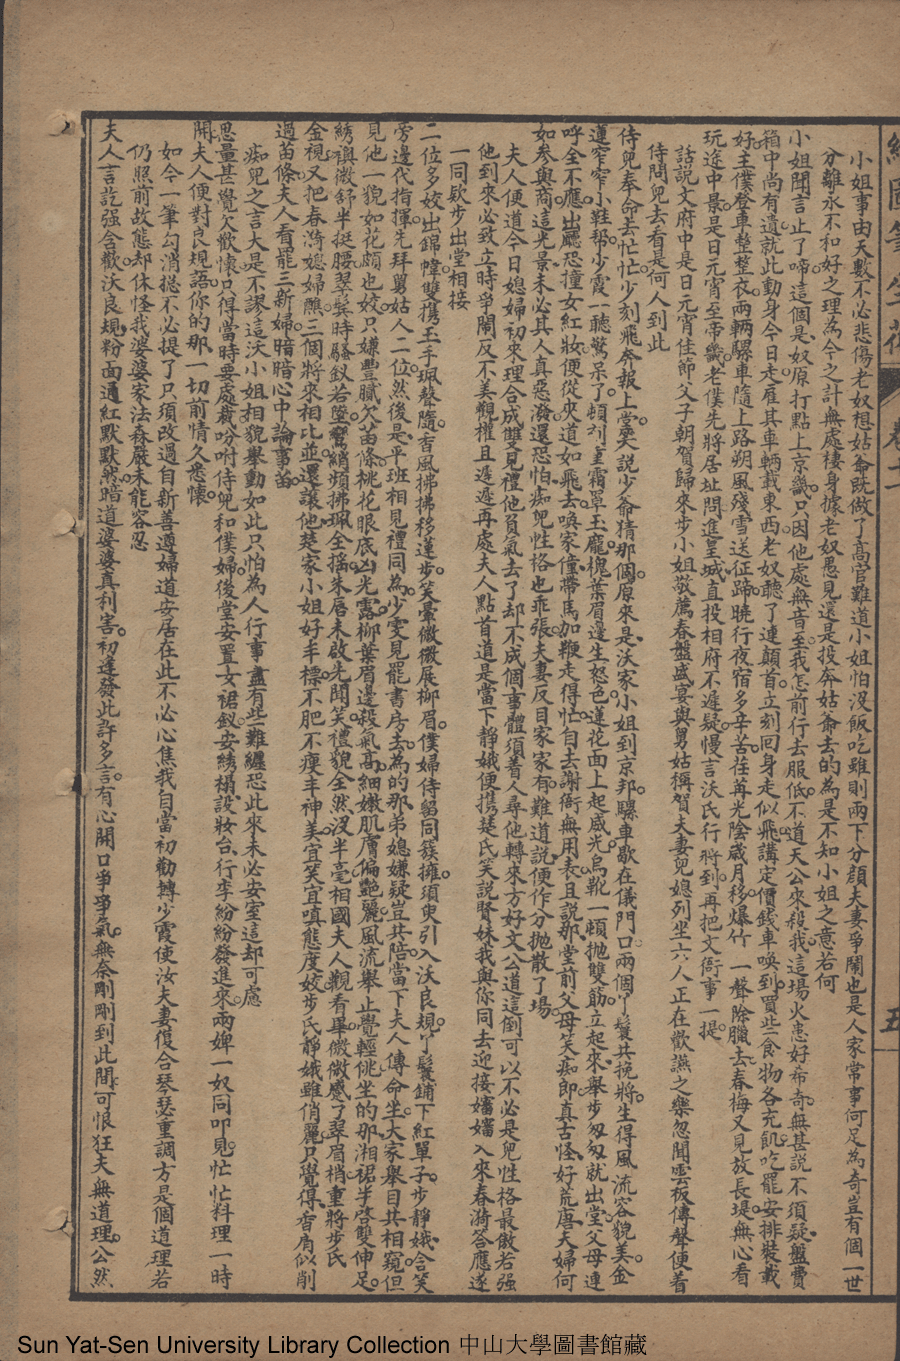 繪圖筆生花
卷十二
五
小姐事由天數不必悲傷老奴想姑爺既做了高官難道小姐怕沒飯吃雖則兩下分顏夫妻爭鬧也是人家常事何足為奇豈有個一世
分離永不和好之理為今之計無處棲身據老奴愚見還是投奔姑爺去的為是不知小姐之意若何
小姐聞言止了啼這個是奴原打點上京畿只因他處無音至我怎前行去服低不道天公來殺我這場火患好希奇無甚說不須疑盤費
箱中尚有遺就此動身今日走雇其車輛載東西老奴聽了連顛首立刻回身走似飛講定價錢車喚到買些食物各充飢吃罷安排裝載
好主僕登車整整衣兩輛騾車隨上路朔風殘雪送征蹄曉行夜宿多辛苦荏苒光陰歲月移爆竹一聲除臘去春梅又見放長堤無心看
玩途中景是日元宵至帝畿老僕先將居址問進皇城直投相府不遲疑慢言沃氏行將到再把文衙事一提
話說文府中是日元宵佳節父子朝賀歸來步小姐敬薦春盤盛宴與舅姑稱賀夫妻兒媳列坐六人正在歡讌之樂忽聞雲板傳聲便着
侍問兒去看是何人到此
侍兒奉命去忙忙少刻飛奔報上堂要說少爺猜那個原來是沃家小姐到京邦騾車歇在儀門口兩個丫鬟共挽將生得風流容貌美金
蓮窄窄小鞋幫少霞一聽驚呆了頓刻重霜罩玉龐槐葉眉邊生怒色蓮花面上起威光烏靴一頓拋雙筯立起來舉步匆匆就出堂父母連
呼全不應出廳恐撞女紅妝便從夾道如飛去喚家僮帶馬加鞭走得忙自去謝衙無用表且說那堂前父母笑痴郎真古怪好荒唐夫婦何
如參與商這光景未必其人真惡潑還恐怕痴兒性格也乖張夫妻反目家家有難道說便作分拋散了場
夫人便道今日媳婦初來理合成雙見禮他負氣去了却不成個事體須着人尋他轉來方好文公道這倒可以不必是兒性格最傲若強
他到來必致立時爭鬧反不美觀權且遲遲再處夫人點首道是當下靜娥便携楚氏笑說賢妹我與你同去迎接嬸嬸入來春漪答應遂
一同欵步出堂相接
二位多姣出錦幃雙携玉手珮聲隨香風拂拂移蓮步笑暈微微展柳眉僕婦侍留同簇擁須臾引入沃良規丫鬟鋪下紅單子步靜娥含笑
旁邊代指揮先拜舅姑人二位然後是平班相見禮同為少雯見罷書房去為的那弟媳嫌疑豈共陪當下夫人傳命坐大家舉目共相窺但
見他一貌如花頗也姣只嫌豐膩欠苗條桃花眼底凶光露柳葉眉邊殺氣高細嫩肌膚偏艷麗風流舉止覺輕佻坐的那湘裙半啓雙伸足
綉襖微舒半挺腰翠鬓時騷釵若墜鸞綃頻拂珮全搖朱唇未啟先聞笑禮貌全然沒半毫相國夫人觀看畢微微蹙了翠眉梢重將步氏
金視又把春漪媳婦瞧三個將來相比並還讓他楚家小姐好丰標不肥不瘦丰神美宜笑宜嗔態度姣步氏靜娥雖俏麗只覺得香肩似削
過苗條夫人看罷三新婦暗暗心中論事苗
痴兒之言大是不謬這沃小姐相貌舉動如此只怕為人行事盡有些難纏恐此來未必安室這却可慮
思量甚覺欠歡懷只得當時要處裁吩咐侍兒和僕婦後堂安置女裙釵安綉榻設妝台行李紛紛發進來兩婢一奴同叩見忙忙料理一時
開夫人便對良規語你的那一切前情久悉懷
如今一筆勾消捴不必提了只須改過自新善遵婦道安居在此不必心焦我自當初勸轉少霞使汝夫妻復合琴瑟重調方是個道理若
仍照前故態却休怪我婆婆家法森嚴未能容忍
夫人言訖强含歡沃良規粉面通紅默默然暗道婆婆真利害初逢發此許多言有心開口爭爭氣無奈剛剛到此間可恨狂夫無道理公然
Sun Yat-Sen University Library Collection 中山大學圖書館藏